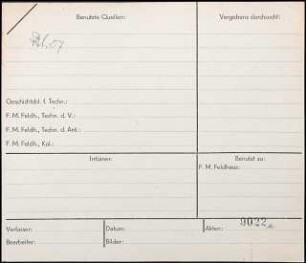 Benutzte Quellen:
Vergebens durchsucht:
Geschichtsbl. f. Techn.:
F. M. Feldh., Techn. d. V.:
F. M. Feldh., Techn. d. Ant.:
F. M. Feldh., Kal.:
Irrtümer:
Benutzt zu:
F. M. Feldhaus:
Verfasser:
Datum:
Akten:
9022
Bearbeiter:
Bilder: